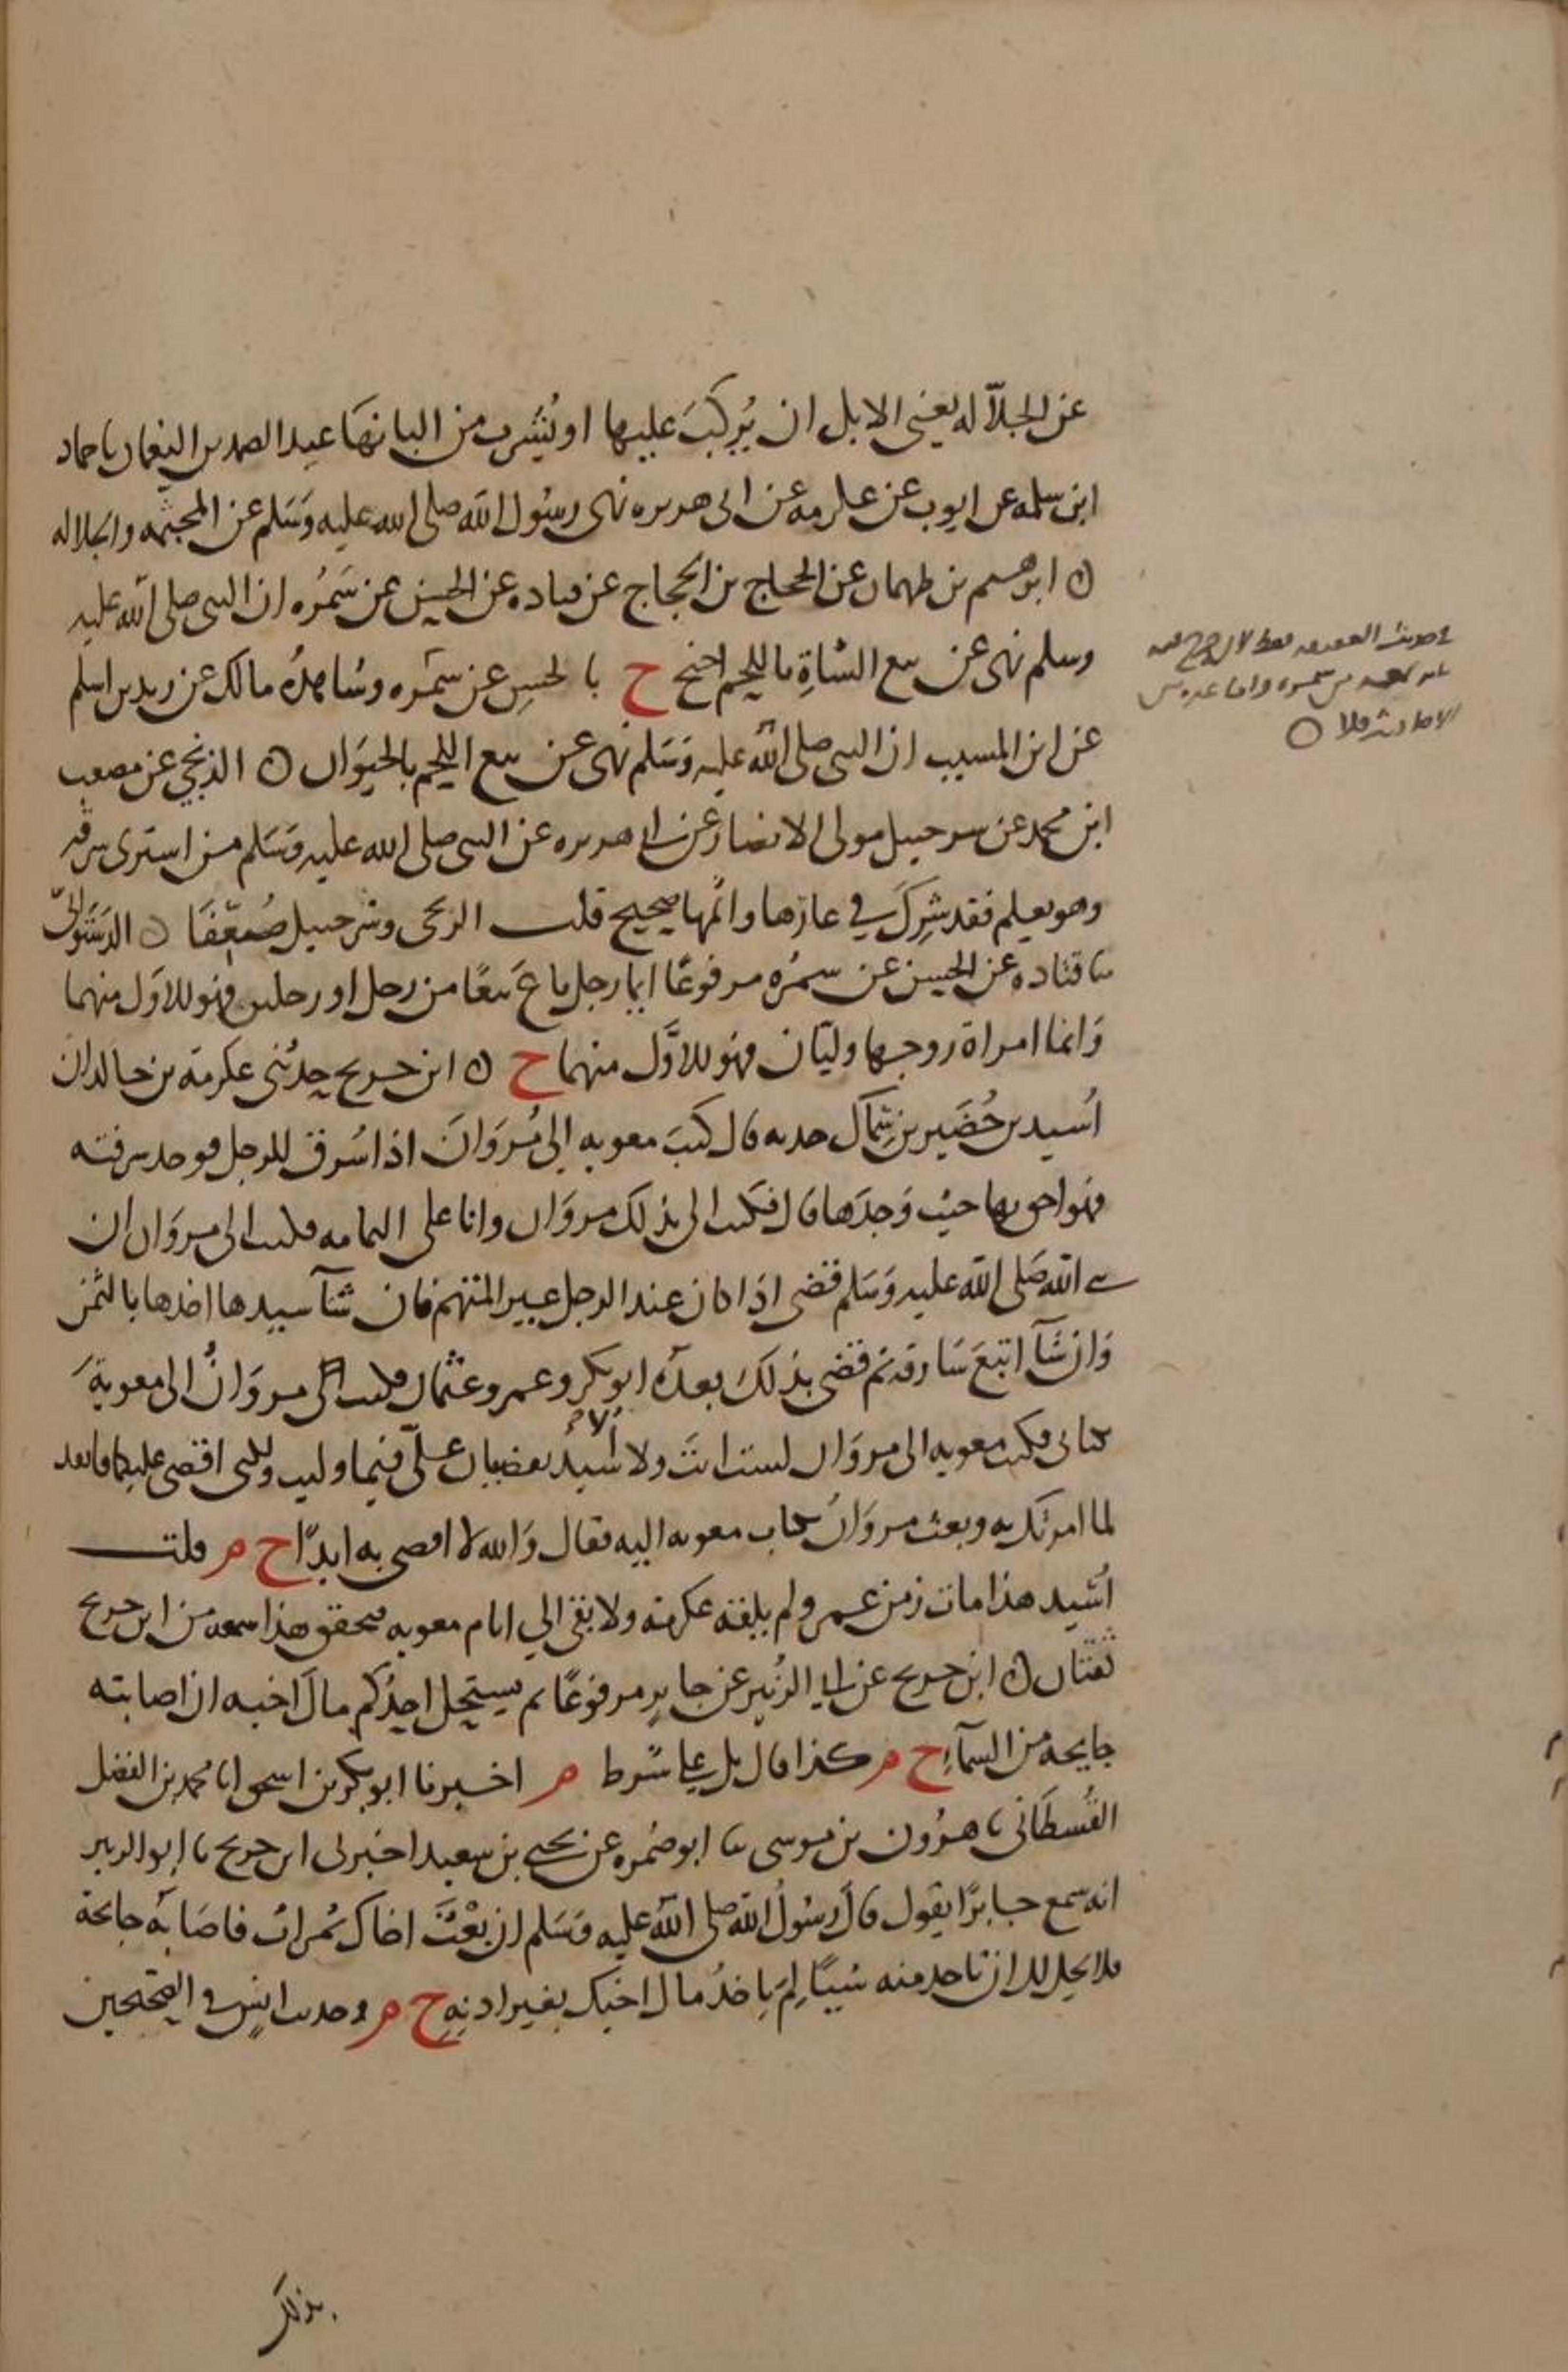 عن الجلاله يعني الابل ان يُركبَ عليها او يُشرب من البانهَا عبد الصمد بن النعمان نا حماد
ابن سلمه عن ايوب عن عكرمه عن ابى هريره نهى رسُول الله صلى الله عليه وَسَلم عن المجثّمه والجلاله
ابرهيم بن طهمان عن الحجاج بن الحجاج عن قتاده عن الحسن عن سَمُره ان النبى صلى الله عليه
وسلم نهى عن بيع الشاةِ باللحم احتج خ بالحسن عن سَمُره وشاهدُه مالك عن زيد بن اسلم
عن ابن المسيب ان النبى صلى الله عليه وَسَلم نهى عن بيع اللحم بالحيَوَان ٥ الزنجي عن مصعب
ابن محمد عن شرحبيل مولى الانصار عن ابي هريره عن النبى صلى الله عليه وَسَلم من اشترى سرقه
وهو يعلم فقد شِركَ في عارها واثمها صحيح قلت الزنجى وشرحبيل ضُعّفَا ٥ الدَستَوائىّ
نا قتاده عن الحسن عن سمُره مرفوعًا ايما رجل باعَ بيعًا من رجل او رجلين فهو للاوَل منهما
وَايما امراة زوجها وليّان فهو للاوَّل منهما خ ٥ ابن جريج حدثنى عكرمة بن خالد ان
اُسيد بن حُضَير بن سِمَاك حدثه قال كتبَ معويه إلى مُروَانَ اذا سُرق للرجل فوجد سرقته
فهو احق بها حيث وَجدَهَا قال فكتب الى بذلك مروَان وانا على اليمامه فكتبت الى مروَان ان
نبي الله صَلى الله عليه وَسَلم قضى اذا كان عند الرجل غير المتهم فان شآ سيدها اخذها بالثمن
وَان شَآ اتبعَ سَارقه ثم قضى بذلكَ بعدَه ابو بكر وعمر وعثمان فكتب الى مروَانُ الى معويةَ
كتابى فكتب معويه الى مروَان لست انتَ ولا اُسَيدُ تقضيان علىّ فيما وليت ولكنى اقضى عليكما فانفد
لما امرتك به وبعث مروَانُ بكتاب معويه اليه فقال وَالله لا اقضى به ابدًا خ م قلت
اُسَيد هذا مات زمن عمر ولم يلقه عكرمه ولا بقى الي ايام معويه فتحقق هذا سمعه من ابن جريج
ثقتان ٥ ابن جريج عن ابي الزُبير عن جابرٍ مرفوعًا بم يستحل احدُكم مالَ اخيه ان اصابته
جايحه من السَمآءِ خ م كذا قال بل على شرط م اخبرنا ابو بكر بن اسحق انا محمد بن الفضل
القُسطَانى نا هرُون بن موسى نا ابو ضمره عن يحيى بن سعيد اخبرنى ابن جريج نا ابو الزبير
انه سمع جابرًا يقول قالَ رسُولُ الله صلى الله عليه وَسَلم ان بِعْتَ اخاك ثمراتٍ فاصَابته جايحة
فلا يحل لك ان تاخد منه شيئًا لِمَ تاخذُ مالَ اخيك بغير ادنِهِ خ م وحديث انس في الصحيحين
في حديث العقيقه فقط لان خ
سمره واما غيره من
الاحاديث فلا ٥
بذلك